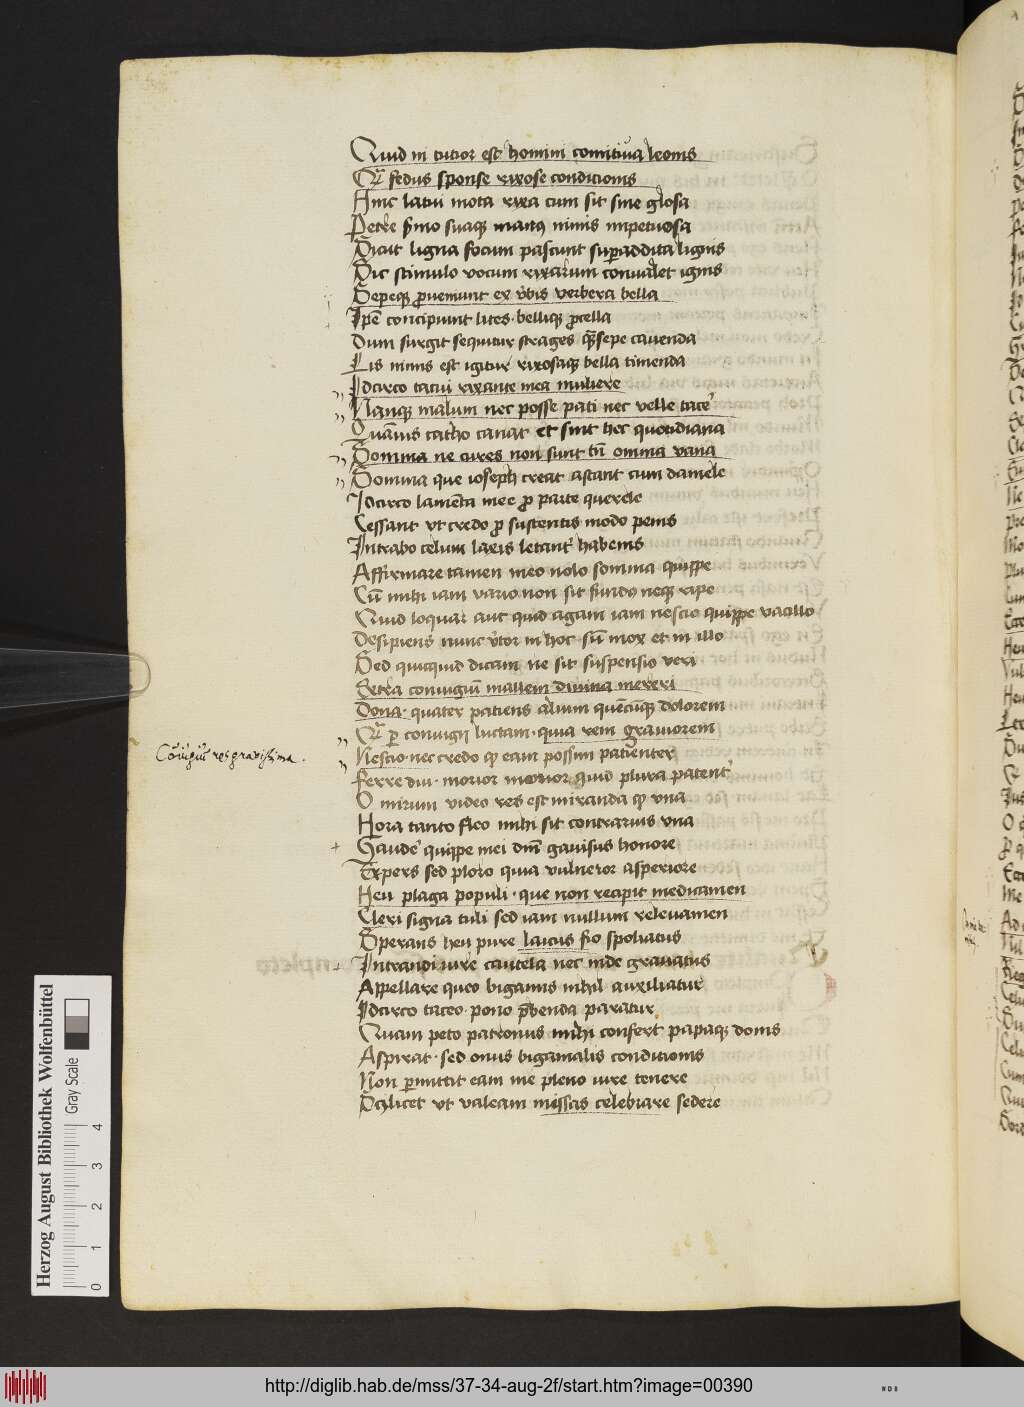 Quid ni tutior est homini comitiva leonis
Qr fedus sponse rixose conditionis
Hinc latui mota rixa cum sit sine glosa
Petre smo suaq manq nimis impetuosa
Sicut ligna focum pascunt supaddita lignis
Sic stimulo vocum rixarum convalet ignis
Sepeq proveniunt ex vbis verbera bella
Ipse concipiunt lites bellique procella
Dum surgit sequitur strages qsepe cavenda
Lis nimis est igitur rixosaq bella timenda
Idcirco tacui rixante mea muliere
Namq malum nec posse pati nec velle tace
Quavis catho canat et sint hec quotidiana
Somnia ne cures non sunt tn omnia vana
Somnia que ioseph creat astant cum daniele
Idcirco lamenta mee pro parte querele
Cessant ut credo pro sustentis modo penis
Intrabo celum laxis letant habenis
Affirmare tamen meo nolo somnia quippe
Cu mihi iam vario non sit fundq neq ripe
Quid loquar aut quid agam iam nescio quippe vacillo
Desipiens nunc vtor in hoc sum mox et in illo
Sed quicquid dicam ne sit suspensio veri
Cetera coniugiu mallem divina mereri
Dona quater patiens alium quecuq dolorem
Qr p coniugii luctam quia rem graviorem
Nescio nec credo q eam possim patienter
Ferre diu morior morior quid plura patent
O mirum video res est miranda q una
Hora tanto fleo mihi sit contrarius una
Gaude quippe mei dni gavisus honore
Expers sed ploro quia vulneror asperiore
Heu plaga populi que non recipit medicamen
Cleri signa tuli sed iam nullum relevamen
Sperans heu pure laicus fio spoliatus
Intrandi iure cautela nec inde gravatus
Appellare queo bigamus nihil auxiliatur
Idcirco taceo pono pbenda paratur
Quam peto patronus mihi confert papaq donis
Aspirat sed onus bigamalis conditionis
Non pmittit eam me pleno iure tenere
Scilicet ut valeam missas celebrare sedere
Coiugiu res gravissima.
Herzog August Bibliothek Wolfenbüttel
Gray Scale
0 1 2 3 4
http://diglib.hab.de/mss/37-34-aug-2f/start.htm?image=00390